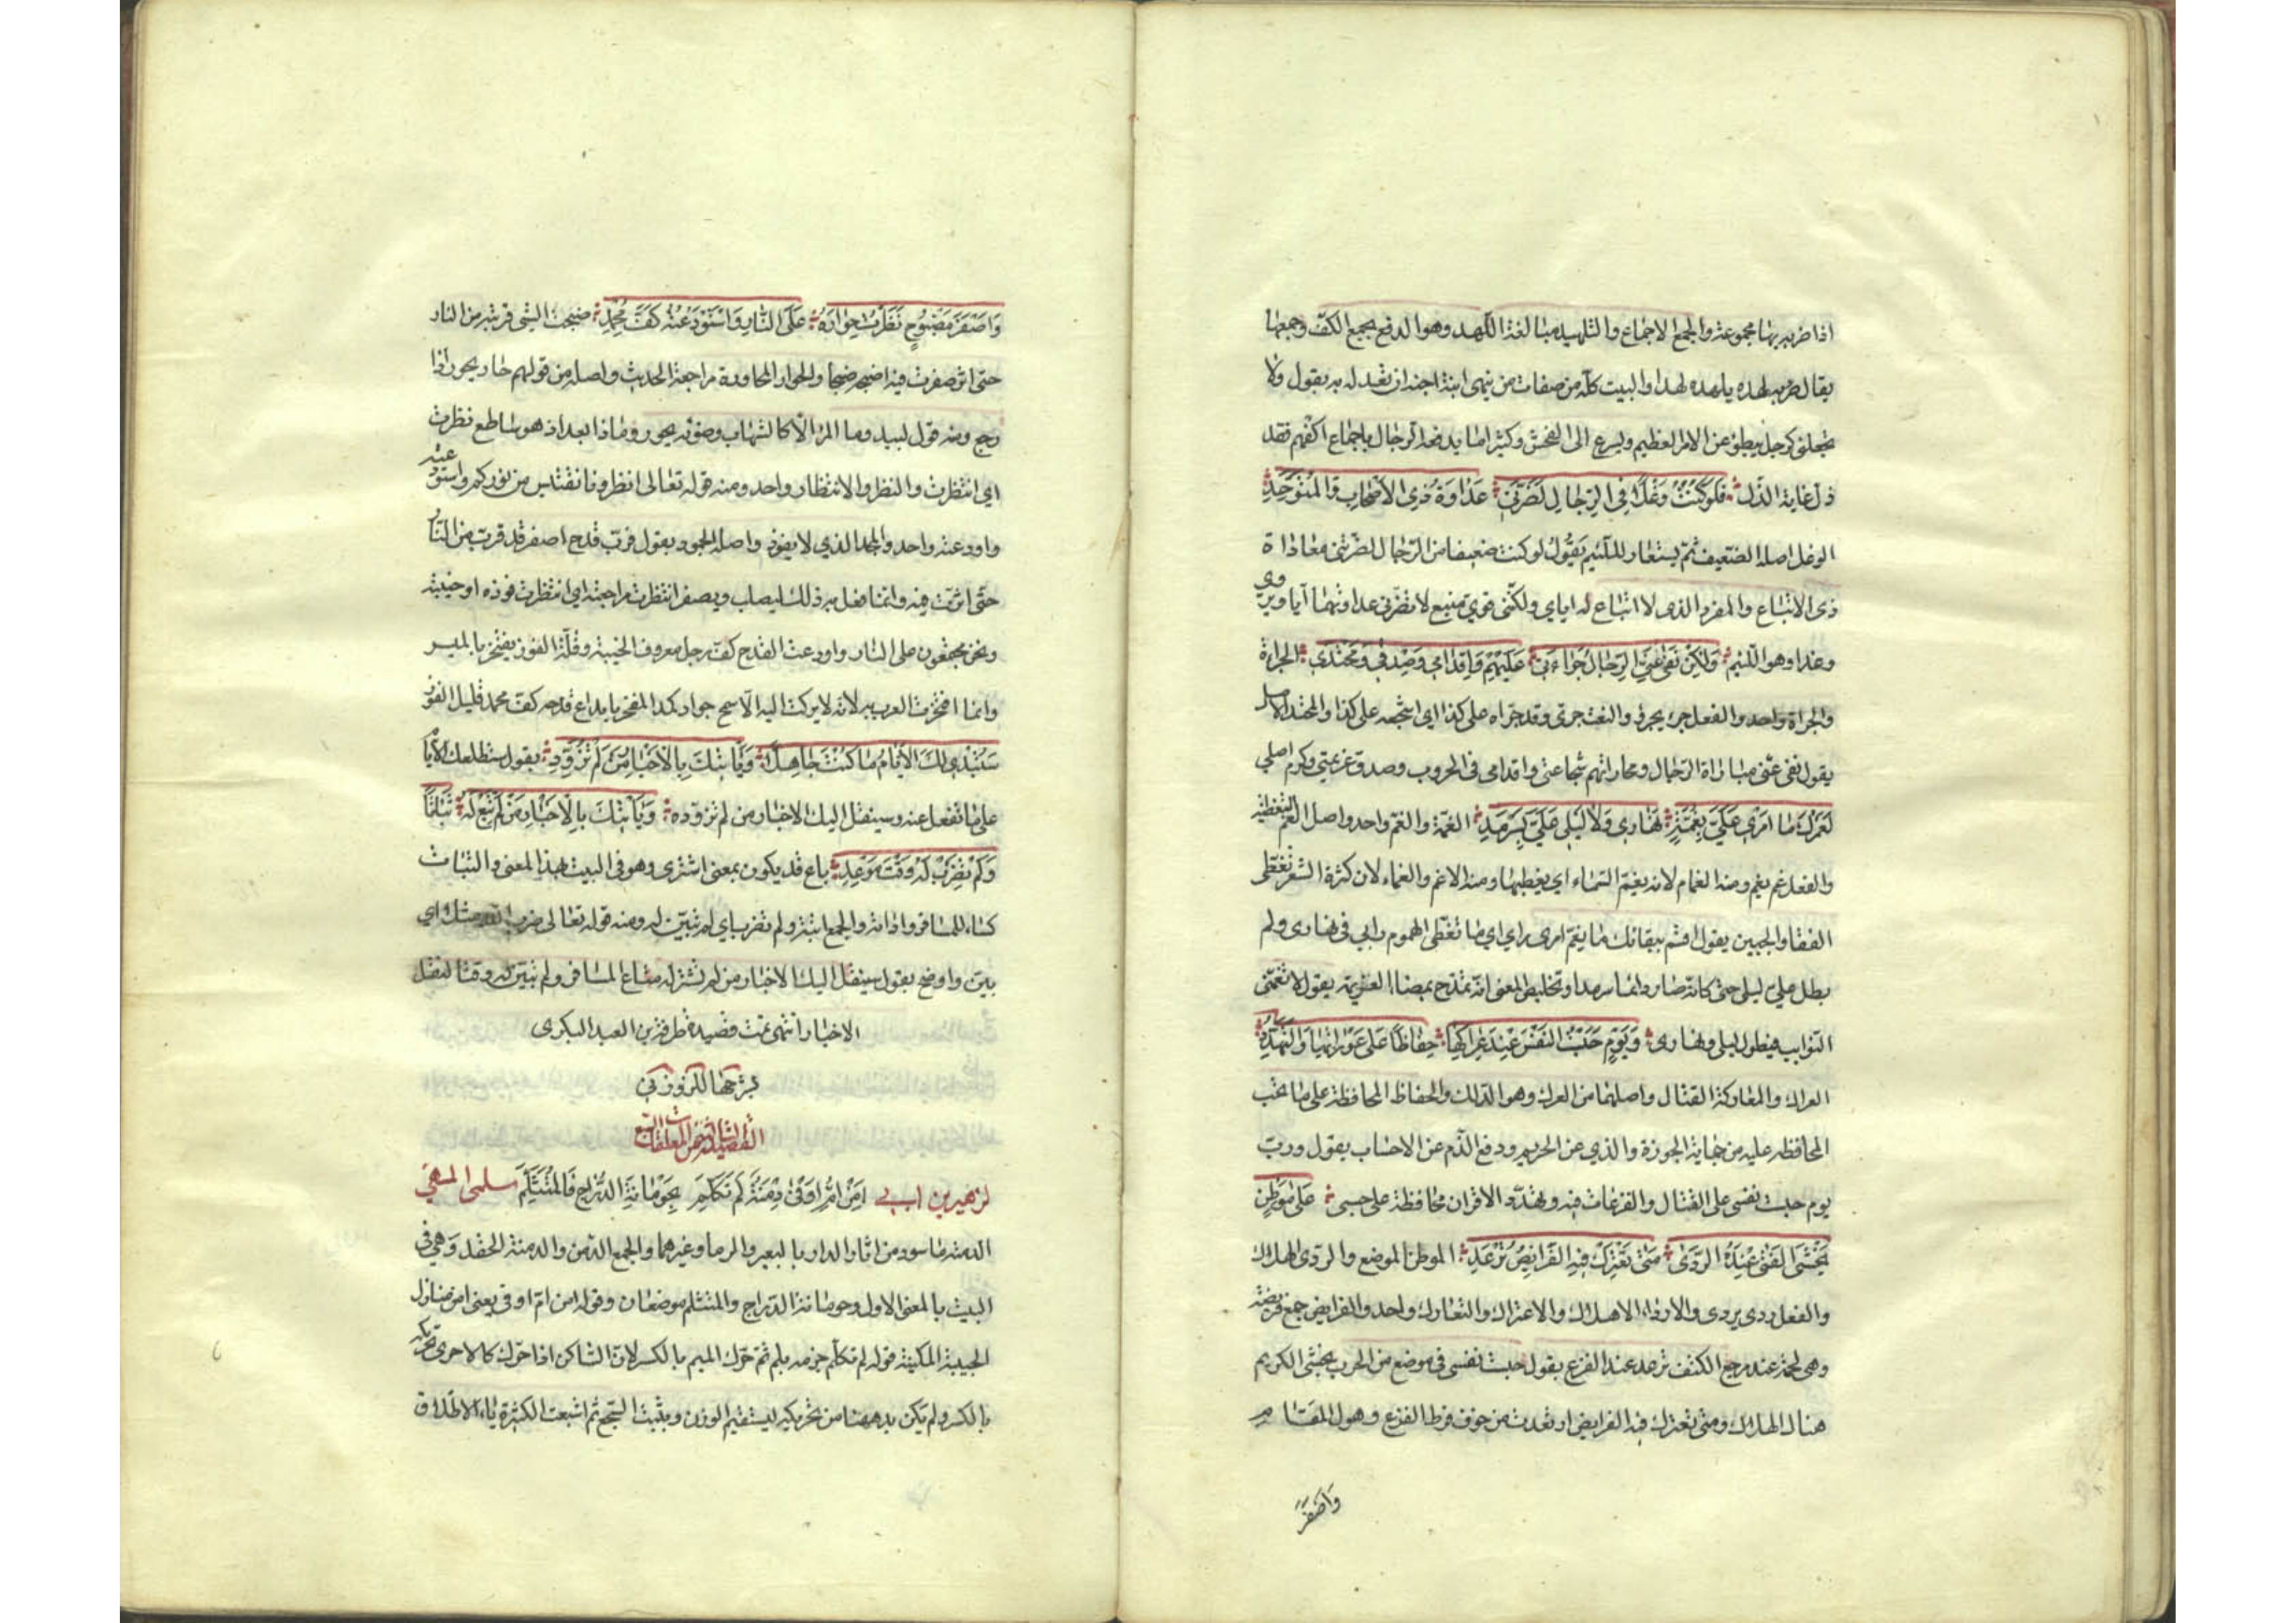 اذا ضربه بها مجموعة والجمع الاجماع والتلهيد مبالغة اللهد وهو الدفع بجمع الكف وجمعها
يقال ضربه لهده يلهده لهدا والبيت كله من صفات من ينهى ابنة اخيه ان تعدله به يقول ولا
تجعلنى كرجل يبطؤ عن الامر العظيم ويسرع الى الفحش وكثيرا ما يدفعه الرجال باجماع اكفهم فقد
ذل غاية الذل فَلَوْ كُنْتُ وَغْلًا فِي الرِّجَالِ لَضَرَّنِي عَدَاوَةُ ذِي الأَصْحَابِ وَالْمُتَوَحِّدِ
الوغل اصله الضعيف ثم يستعار للئيم يَقُولُ لو كنت ضعيفا من الرجال لضرتنى معاداة
ذى الاتباع والمفرد الذى لا اتباع له اياي ولكننى قوي منيع لا تضرنى عداوتهما اياي ويروى
وغدا وهو اللئيم وَلَكِنْ نَفَى عَنِّي الرِّجَالَ جَرَاءَتِي عَلَيْهِمْ وَاِقْدَامِي وَصِدْقِي وَمَحْتَدِي الجراة
والجراة واحد والفعل جرؤ يجرؤ والنعت جرى وقد جراه على كذا اي شجعه على كذا والمحتد الاصل
يقول نفى عنى مباراة الرجال ومجاراتهم شجاعتى واقدامى فى الحروب وصدق عزيمتى وكرم اصلي
لَعَمْرُكَ مَا اَمْرِي عَلَيَّ بِغُمَّةٍ نَهَارِي وَلَا لَيْلِي عَلَيَّ بِسَرْمَدِ الغمة والغم واحد واصل الغم التغطية
والفعل غم يغم ومنه الغمام لانه يغم السماء اي يغطيها ومنه الاغم والغماء لان كثرة الشعر تغطى
القفا والجبين يقول اقسم ببقائك ما يغم امرى راي اي ما تغطى الهموم رايي فى نهارى ولم
يطل علي ليلى حتى كانه صار دائما سرمدا وتخليص المعنى انه تمدح بمضاء العزيمة يقول لا تغمنى
النوايب فيطول ليلى ونهارى وَيَوْمٍ حَبَسْتُ النَّفْسَ عِنْدَ عِرَاكِهَا حِفَاظًا عَلَى عَوْرَاتِهَا وَالتَّهَدُّدِ
العراك والمعاركة القتال واصلهما من العرك وهو الدلك والحفاظ المحافظة على ما تجب
المحافظه عليه من حماية الحوزة والذي عن الحريم ودفع الذم عن الاحساب يقول ورب
يوم حبست نفسى على القتال والفزعات فيه وتهدد الاقران محافظة على حسبى عَلَى مَوْطِنٍ
يَخْشَى الْفَتَى عِنْدَهُ الرَّدَى مَتَى تَعْتَرِكْ فِيهِ الْفَرَايِصُ تُرْعَدِ الموطن الموضع والردى الهلاك
والفعل ردى يردى والارداء الاهلاك والاعتراك والتعارك واحد والفرايص جمع فريصة
وهى لحمة عند مرجع الكتف ترعد عند الفزع يقول حبست نفسى فى موضع من الحرب يخشى الكريم
هناك الهلاك ومتى تعترك فيه الفرايص ارتعدت من خوف فرط الفزع وهول المقام
وَاَصْفَرَ
وَاَصْفَرَ مَضْبُوحٍ نَظَرْتُ حِوَارَهُ عَلَى النَّارِ وَاسْتَوْدَعْتُهُ كَفَّ مُجْمِدِ ضبحت الشى قربته من النار
حتى اثرت فيه اضبحه ضبحا والحوار المحاورة مراجعة الحديث واصله من قولهم حار يحور اذا
رجع ومنه قول لبيد وما المرء الا كالشهاب وضوئه يحور رمادا بعد اذ هو ساطع نظرت
اي انتظرت والنظر والانتظار واحد ومنه قوله تعالى انظرونا نقتبس من نوركم واستودعته
واودعته واحد والمجمد الذي لا يفوز واصله الجمود يقول فرب قدح اصفر قد قربت من النار
حتى اثرت فيه وانما فعل به ذلك ليصلب ويصفر انتظرت مراجعته اي انتظرت فوزه او خيبته
ونحن مجتمعون على النار واودعت القدح كف رجل معروف الخيبة وقلة الفوز يفتخر بالميسر
وانما افتخرت العرب به لانه لا يركن اليه الا سمح جواد كد المفخر بايداع قدحه كف مجمد قليل الفوز
سَتُبْدِي لَكَ الأَيَّامُ مَا كُنْتَ جَاهِلًا وَيَأْتِيكَ بِالأَخْبَارِ مَنْ لَمْ تُزَوِّدِ يقول ستطلعك الايام
على ما تغفل عنه وسينقل اليك الاخبار من لم تزوده وَيَأْتِيكَ بِالأَخْبَارِ مَنْ لَمْ تَبِعْ لَهُ بَتَاتًا
وَلَمْ تَضْرِبْ لَهُ وَقْتَ مَوْعِدِ باع قد يكون بمعنى اشترى وهو فى البيت بهذا المعنى والبتات
كساء المسافر واداته والجمع ابتة ولم تضرب اي لم تبين له ومنه قوله تعالى ضرب الله مثلا اي
بين واوضح يقول سينقل اليك الاخبار من لم تشتر له متاع المسافر ولم تبين له وقتا لنقل
الاخبار انتهى تمت قصيدة طرفة بن العبد البكرى
بشرحها للزوزنى
القصيدة الثالثة من المعلقات السبع
لزهير بن ابي سلمى المزني اَمِنْ اُمِّ اَوْفَى دِمْنَةٌ لَمْ تَكَلَّمِ بِحَوْمَانَةِ الدُّرَّاجِ فَالْمُتَثَلَّمِ
الدمنة ما سود من اثار الدار بالبعر والرماد وغيرهما والجمع الدمن والدمنة الحقد وهي فى
البيت بالمعنى الاول وحومانة الدراج والمتثلم موضعان وقوله امن ام اوفى يعنى امن منازل
الحبيبة المكنية قوله لم تكلم جزمه بلم ثم حرك الميم بالكسر لان الساكن اذا حرك كالاحرى تحريكه
بالكسر ولم يكن بد ههنا من تحريكه ليستقيم الوزن ويثبت السجع ثم اشبعت الكسرة ياء الاطلاق